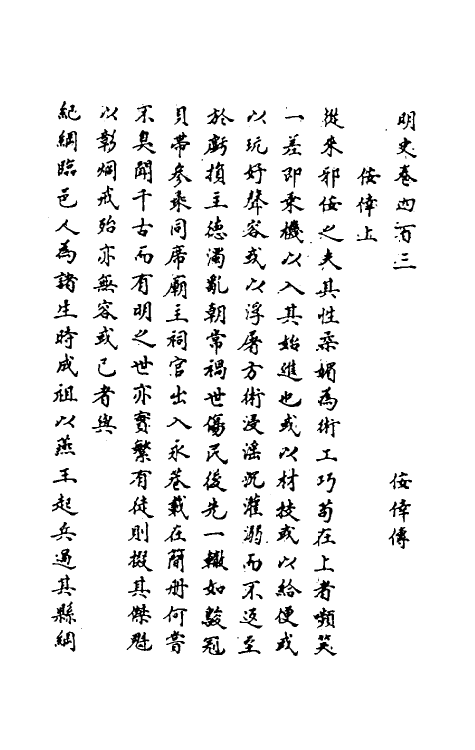 明史卷四百三
佞倖傳
佞倖上
從來邪佞之夫其性柔媚為術工巧苟在上者嚬笑
一差即乘機以入其始進也或以材技或以給便或
以玩好聲容或以浮屠方術浸滛沉灌溺而不返至
於虧損主德濁亂朝常禍世傷民後先一轍如鵔冠
貝帶參乘同席廟主祠官出入永巷載在簡冊何嘗
不臭聞千古而有明之世亦實繁有徒則掇其傑魁
以彰炯戒殆亦無容或已者與
紀綱臨邑人為諸生時成祖以燕王起兵過其縣綱